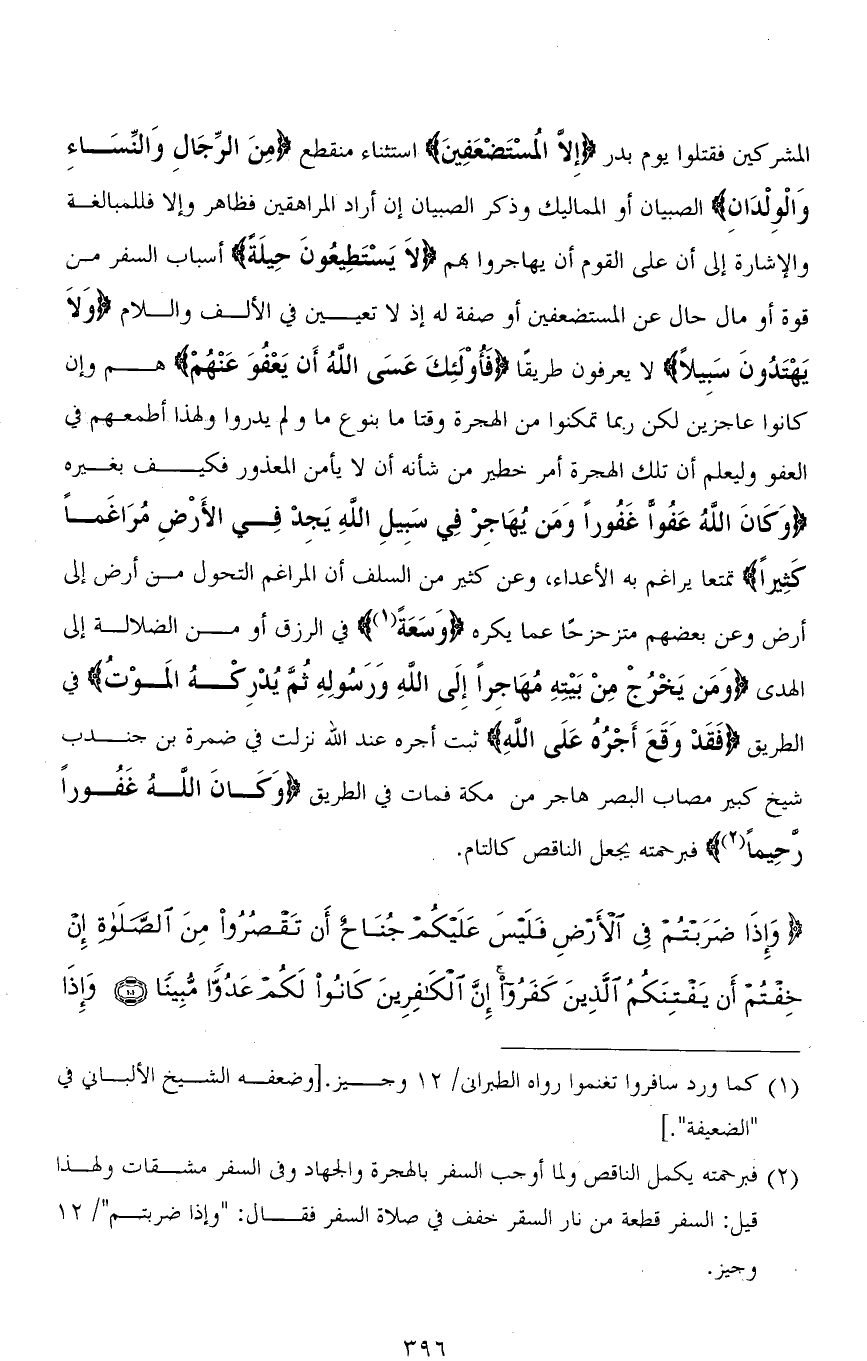 المشركين فقتلوا يوم بدر ﴿إِلاَّ الْمُسْتَضْعَفِينَ﴾ استثناء منقطع ﴿مِنَ الرِّجَالِ وَالنِّسَاءِ
وَالْوِلْدَانِ﴾ الصبيان أو المماليك وذكر الصبيان إن أراد المراهقين فظاهر وإلا فللمبالغة
والإشارة إلى أن على القوم أن يهاجروا بهم ﴿لاَ يَسْتَطِيعُونَ حِيلَةً﴾ أسباب السفر من
قوة أو مال حال عن المستضعفين أو صفة له إذ لا تعيين في الألف واللام ﴿وَلاَ
يَهْتَدُونَ سَبِيلاً﴾ لا يعرفون طريقًا ﴿فَأُوْلَئِكَ عَسَى اللَّهُ أَن يَعْفُوَ عَنْهُمْ﴾ هم وإن
كانوا عاجزين لكن ربما تمكنوا من الهجرة وقتا ما بنوع ما ولم يدروا ولهذا أطمعهم في
العفو وليعلم أن تلك الهجرة أمر خطير من شأنه أن لا يأمن المعذور فكيف بغيره
﴿وَكَانَ اللَّهُ عَفُواًّ غَفُوراً وَمَن يُهَاجِرْ فِي سَبِيلِ اللَّهِ يَجِدْ فِي الأَرْضِ مُرَاغَماً
كَثِيراً﴾ تمتعا يراغم به الأعداء، وعن كثير من السلف أن المراغم التحول من أرض إلى
أرض وعن بعضهم متزحزحًا عما يكره ﴿وَسَعَةً(١)﴾ في الرزق أو من الضلالة إلى
الهدى ﴿وَمَن يَخْرُجْ مِنْ بَيْتِهِ مُهَاجِراً إِلَى اللَّهِ وَرَسُولِهِ ثُمَّ يُدْرِكْهُ الْمَوْتُ﴾ في
الطريق ﴿فَقَدْ وَقَعَ أَجْرُهُ عَلَى اللَّهِ﴾ ثبت أجره عند الله نزلت في ضمرة بن جندب
شيخ كبير مصاب البصر هاجر من مكة فمات في الطريق ﴿وَكَانَ اللَّهُ غَفُوراً
رَّحِيماً(٢)﴾ فبرحمته يجعل الناقص كالتام.
﴿وَإِذَا ضَرَبْتُمْ فِي ٱلْأَرْضِ فَلَيْسَ عَلَيْكُمْ جُنَاحٌ أَن تَقْصُرُوا۟ مِنَ ٱلصَّلَوٰةِ إِنْ
خِفْتُمْ أَن يَفْتِنَكُمُ ٱلَّذِينَ كَفَرُوٓا۟ ۚ إِنَّ ٱلْكَـٰفِرِينَ كَانُوا۟ لَكُمْ عَدُوًّا مُّبِينًا ١٠١ وَإِذَا
(١) كما ورد سافروا تغنموا رواه الطبرانى/ ١٢ وجيز.[وضعفه الشيخ الألباني في
"الضعيفة".]
(٢) فبرحمته يكمل الناقص ولما أوجب السفر بالهجرة والجهاد وفى السفر مشقات ولهذا
قيل: السفر قطعة من نار السقر خفف في صلاة السفر فقال: "وإذا ضربتم"/ ١٢
وجيز.
٣٩٦